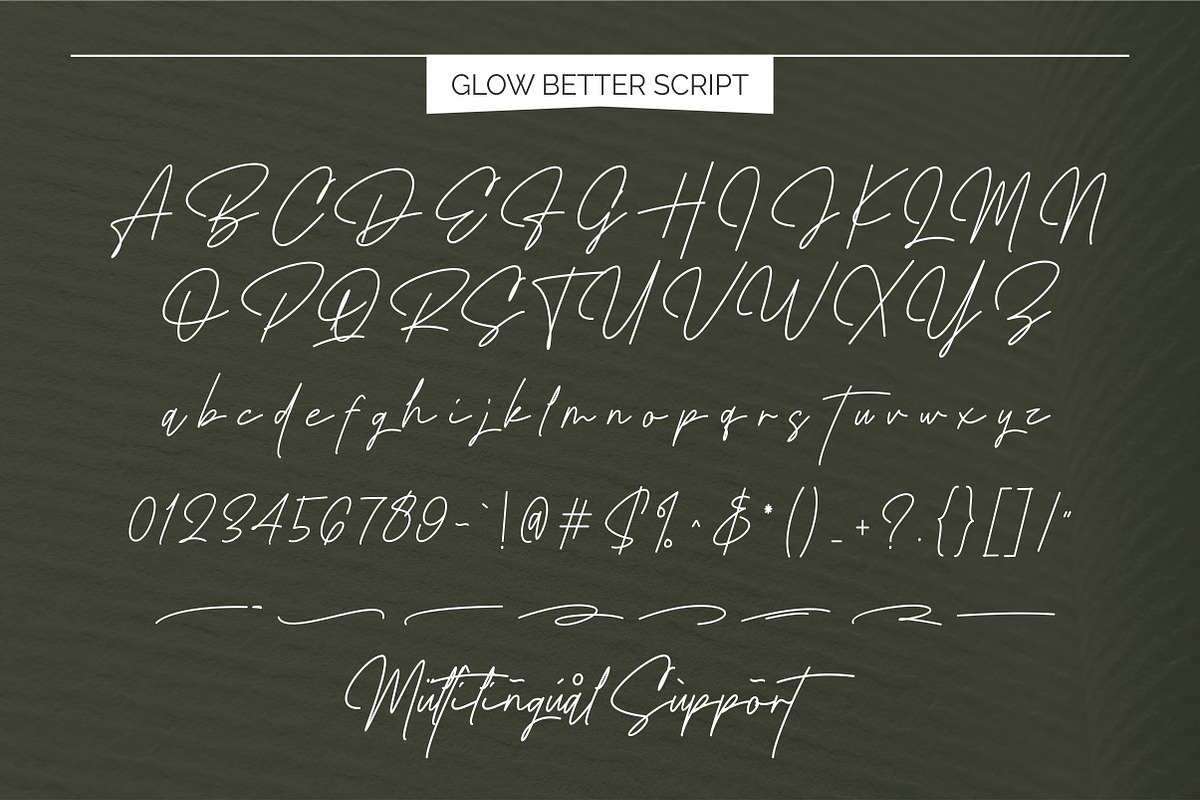 GLOW BETTER SCRIPT
A B C D E F G H I J K L M N
O P Q R S T U V W X Y Z
a b c d e f g h i j k l m n o p q r s t u v w x y z
0123456789~`!@#$%^&*()_+?.{}[]/"
Mültilíñgúål Sùppõrt